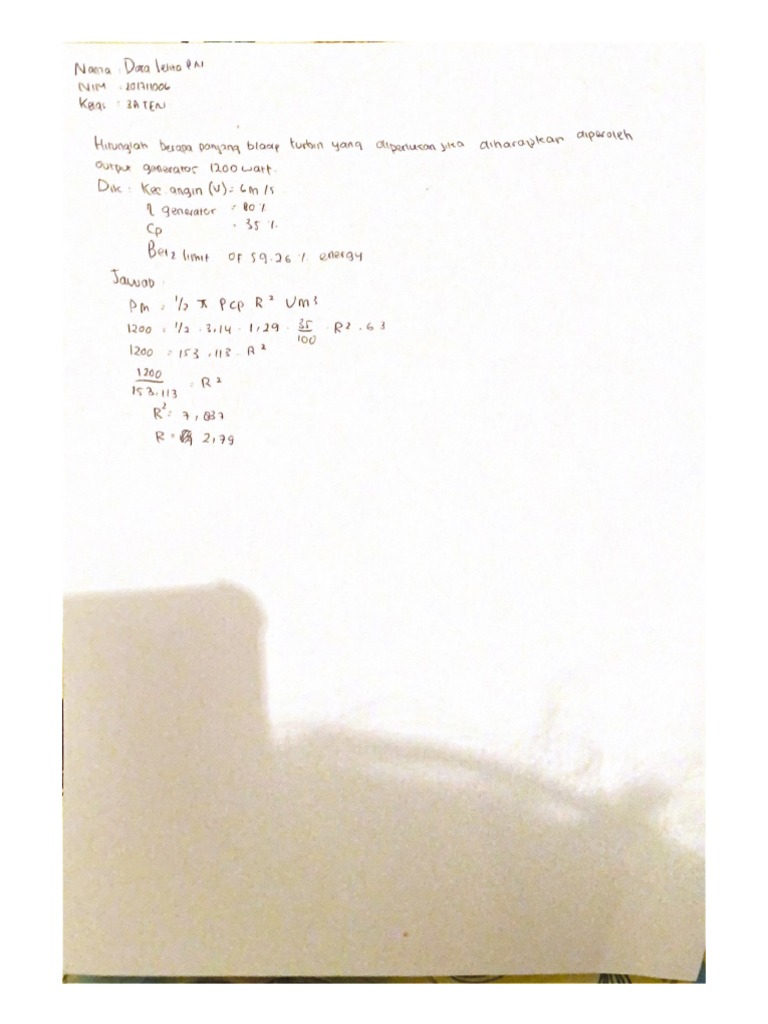 Nama : Dora
NIM : 201711006
Kelas : 3A TEN
Hitunglah berapa panjang blade turbin yang diperlukan jika diharapkan diperoleh
output generator 1200 watt.
Dik : Kec angin (V) = 6 m/s
η generator = 80 %
Cp = 35 %
Betz limit of 59.26 % energy
Jawab :
Pm = 1/2 π ρ cp R² Um³
1200 = 1/2 . 3,14 . 1,29 . 35/100 . R² . 63
1200 = 153,113 . R²
1200/153.113 = R²
R² = 7,837
R = 2,79